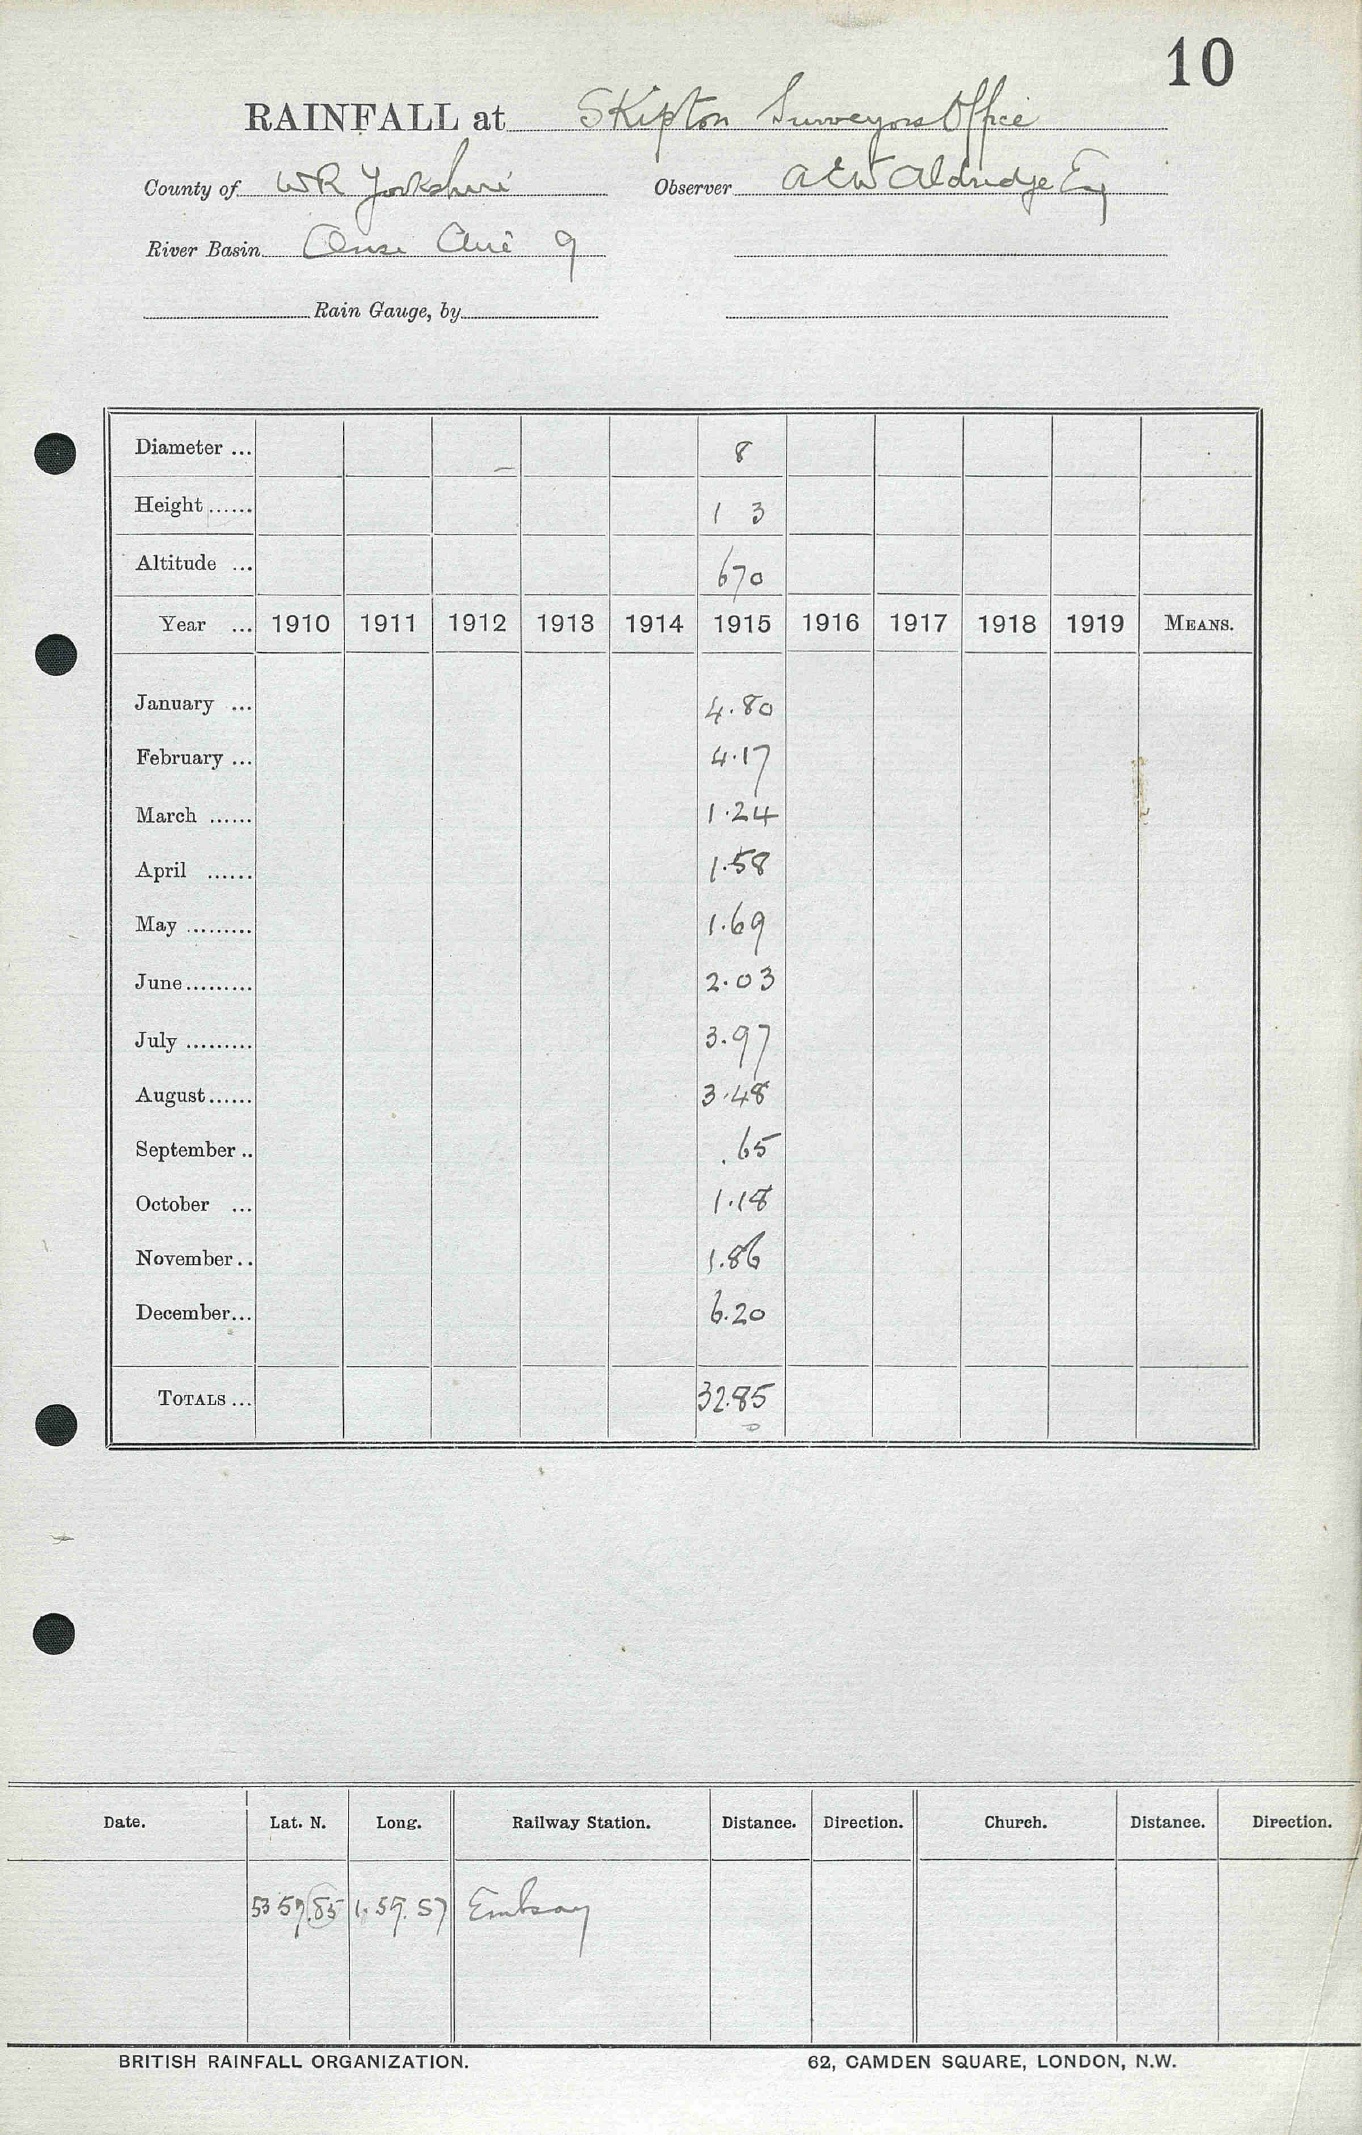 10
RAINFALL at Skipton Surveyors Office
County of WR Yorkshire Observer A E W Aldridge Esq
River Basin Ouse Aire 9
Rain Gauge, by
Diameter ... 8
Height ...... 1 3
Altitude ... 670
Year ... 1910 1911 1912 1913 1914 1915 1916 1917 1918 1919 MEANS.
January ... 4.80
February ... 4.17
March ...... 1.24
April ...... 1.58
May ......... 1.69
June ......... 2.03
July ......... 3.97
August ...... 3.48
September .. .65
October ... 1.18
November .. 1.86
December ... 6.20
TOTALS ... 32.85
Date. Lat. N. Long. Railway Station. Distance. Direction. Church. Distance. Direction.
53 59.85 1.59.57 Embsay
BRITISH RAINFALL ORGANIZATION. 62, CAMDEN SQUARE, LONDON, N.W.